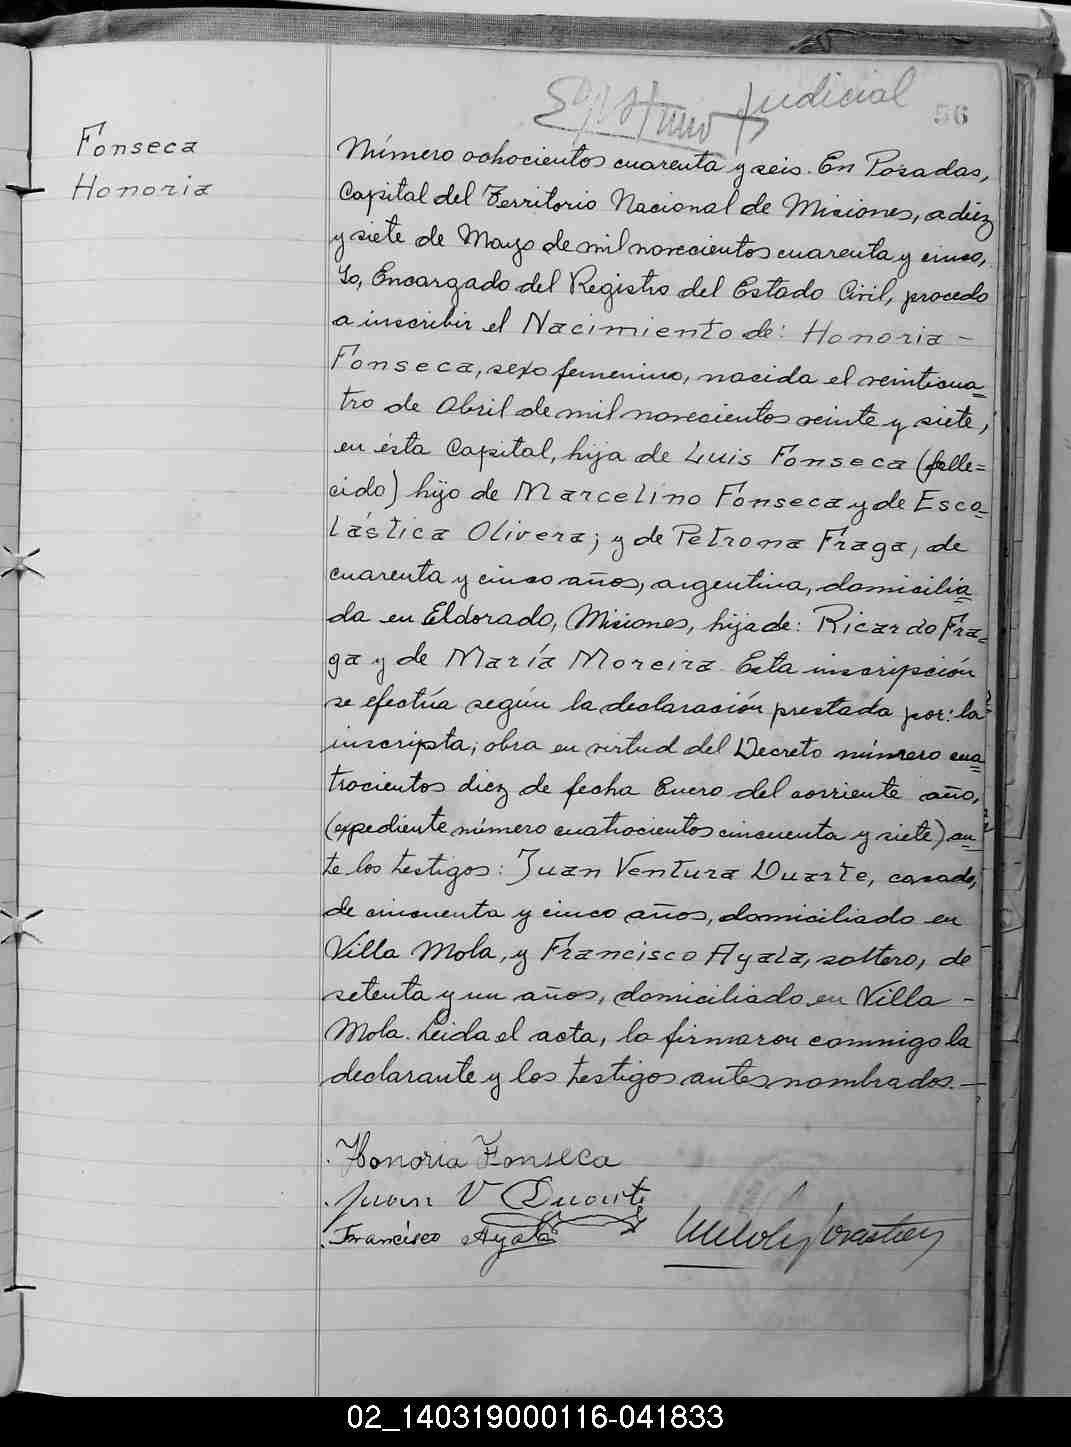 Judicial
56
Fonseca
Honoria
Número ochocientos cuarenta y seis. En Posadas,
Capital del Territorio Nacional de Misiones, a diez
y siete de Mayo de mil novecientos cuarenta y cinco,
Yo, Encargado del Registro del Estado Civil, procedo
a inscribir el Nacimiento de: Honoria -
Fonseca, sexo femenino, nacida el veinticua=
tro de Abril de mil novecientos veinte y siete,
en ésta Capital, hija de Luis Fonseca (falle=
cido) hijo de Marcelino Fonseca y de Esco=
lástica Olivera; y de Petrona Fraga, de
cuarenta y cinco años, argentina, domicilia=
da en Eldorado, Misiones, hija de: Ricardo Fra=
ga y de María Moreira. Esta inscripción
se efectúa según la declaración prestada por: la
inscripta; obra en virtud del Decreto número cua=
trocientos diez de fecha Enero del corriente año,
(expediente número cuatrocientos cincuenta y siete) an=
te los testigos: Juan Ventura Duarte, casado,
de cincuenta y cinco años, domiciliado en
Villa Mola, y Francisco Ayala, soltero, de
setenta y un años, domiciliado en Villa -
Mola. Leida el acta, la firmaron conmigo la
declarante y los testigos antes nombrados. —
Honoria Fonseca
Juan V Duarte
Francisco Ayala
02_140319000116-041833